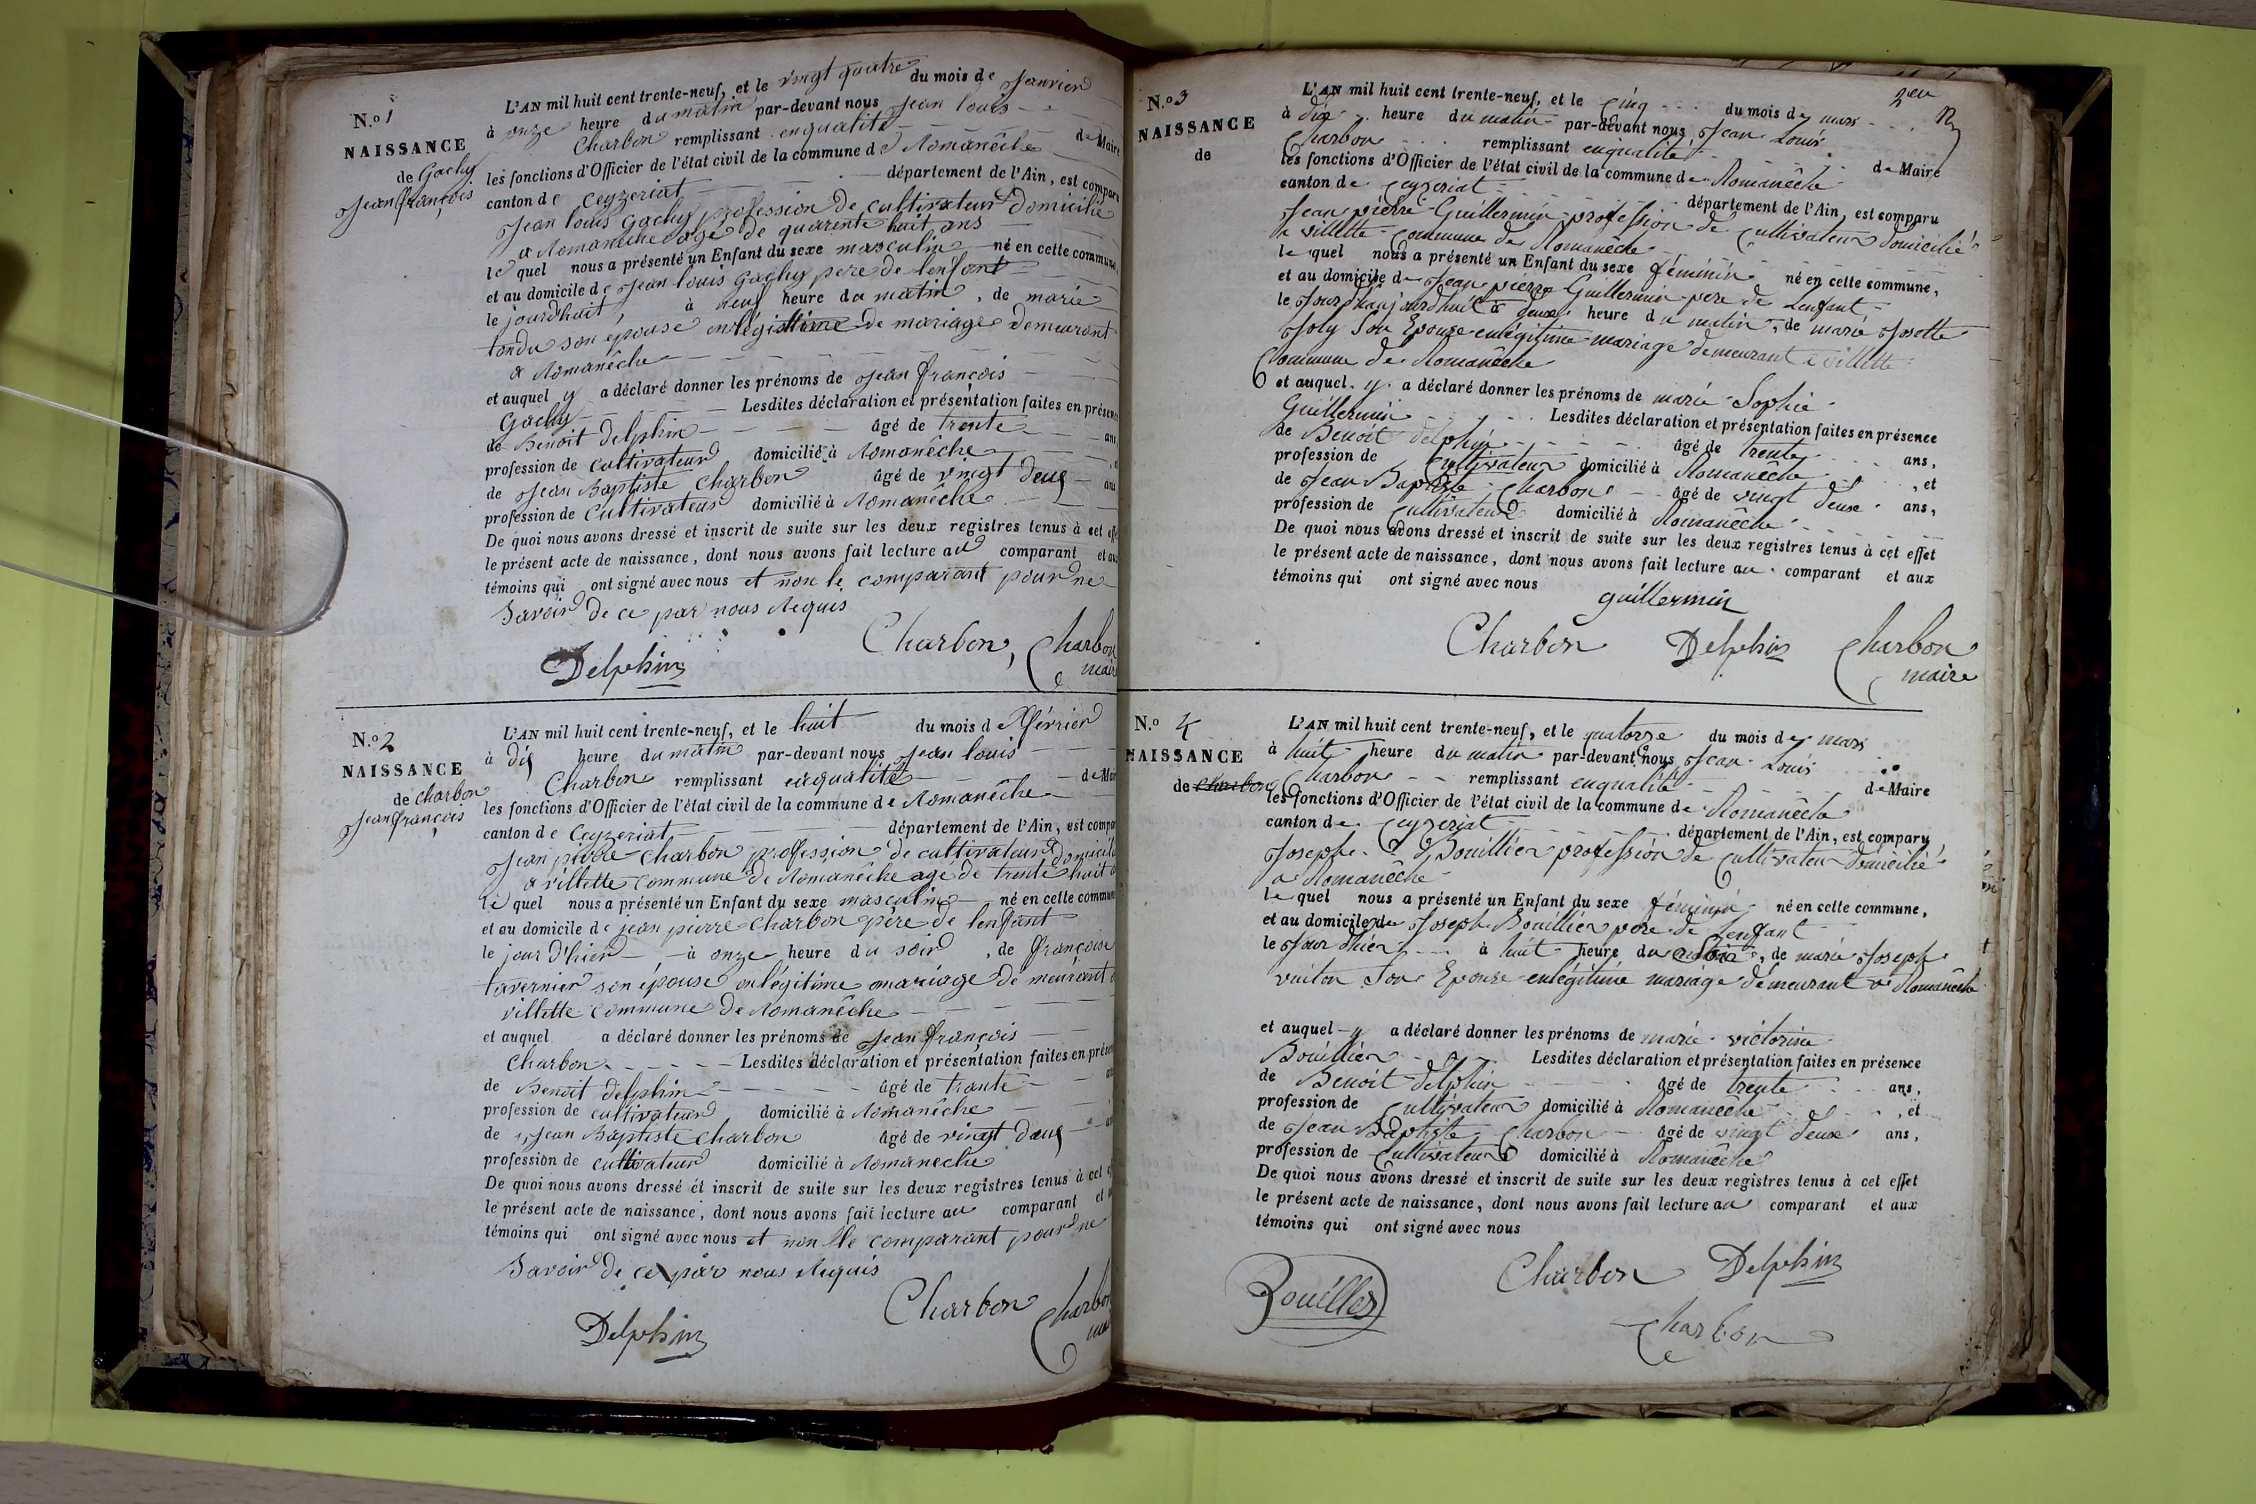 N.o 1
NAISSANCE
de Gachy
Jean françois
L'AN mil huit cent trente-neuf, et le vingt quatre du mois de Janvier
à onze heure du matin par-devant nous Jean louis
Charbon remplissant enqualité de Maire
les fonctions d'Officier de l'état civil de la commune de Romanêche
canton de Ceyzeriat département de l'Ain, est comparu
Jean louis Gachy profession de cultivateur domicilié
a Romanêche age de quarente huit ans
le quel nous a présenté un Enfant du sexe masculin né en cette commune,
et au domicile de Jean louis Gachy pere de lenfant
le jourd'huit à neuf heure du matin, de marie
tondu son épouse en légittime de mariage demeurant
a Romanêche
et auquel y a déclaré donner les prénoms de Jean françois
Gachy Lesdites déclaration et présentation faites en présence
de Benoit delphin âgé de trente ans
profession de cultivateur domicilié à Romanêche
de Jean Baptiste Charbon âgé de vingt deux ans
profession de Cultivateur domicilié à Romanêche
De quoi nous avons dressé et inscrit de suite sur les deux registres tenus à cet effet
le présent acte de naissance, dont nous avons fait lecture au comparant et aux
témoins qui ont signé avec nous et non le comparant pour ne
Savoir de ce par nous Requis
Delphin Charbon, Charbon
maire
N.o 2
NAISSANCE
de charbon
Jean françois
L'AN mil huit cent trente-neuf, et le huit du mois de Février
à dix heure du matin par-devant nous Jean louis
Charbon remplissant enqualité de Maire
les fonctions d'Officier de l'état civil de la commune de Romanêche
canton de Ceyzeriat département de l'Ain, est comparu
Jean pierre Charbon profession de cultivateur domicilié
a villette commune de Romanêche age de trente huit
le quel nous a présenté un Enfant du sexe masculin né en cette commune
et au domicile de jean pierre Charbon père de lenfant
le jour d'hier à onze heure du soir, de françoise
tavernier son épouse en légitime mariage de meurant a
villette commune de Romanêche
et auquel a déclaré donner les prénoms de Jean françois
Charbon Lesdites déclaration et présentation faites en présence
de Benoit delphin âgé de trante
profession de cultivateur domicilié à Romanêche
de Jean Baptiste Charbon âgé de vingt deux
profession de cultivateur domicilié à Romaneche
De quoi nous avons dressé et inscrit de suite sur les deux registres tenus à cet
le présent acte de naissance, dont nous avons fait lecture au comparant et
témoins qui ont signé avec nous et non le comparant pour ne
Savoir de ce par nous Requis
Delphin Charbon Charbon
N.o 3
NAISSANCE
de
L'AN mil huit cent trente-neuf, et le cinq du mois de mars
à dix heure du matin par-devant nous Jean Louis
Charbon remplissant enqualité de Maire
les fonctions d'Officier de l'état civil de la commune de Romanêche
canton de Ceyzeriat département de l'Ain, est comparu
Jean pierre Guillermin profession de Cultivateur domicilié
a villette Commune de Romanêche
le quel nous a présenté un Enfant du sexe féminin né en cette commune,
et au domicile de Jean pierre Guillermin pere de Lenfant
le Jourdhaujourdhuit à deux heure du matin, de marie Josette
Joly Son Epouse enlégitime mariage demeurant a villette
Commune de Romanêche
et auquel y a déclaré donner les prénoms de marie Sophie
Guillermin Lesdites déclaration et présentation faites en présence
de Benoit delphin âgé de trente ans,
profession de Cultivateur domicilié à Romanêche, et
de Jean Baptiste Charbon âgé de vingt deux ans,
profession de Cultivateur domicilié à Romanêche
De quoi nous avons dressé et inscrit de suite sur les deux registres tenus à cet effet
le présent acte de naissance, dont nous avons fait lecture au comparant et aux
témoins qui ont signé avec nous
guillermin
Charbon Delphin Charbon
maire
N.o 4
NAISSANCE
de Charbon
L'AN mil huit cent trente-neuf, et le quatorze du mois de mars
à huit heure du matin par-devant nous Jean Louis
Charbon remplissant enqualité de Maire
les fonctions d'Officier de l'état civil de la commune de Romanêche
canton de Ceyzeriat département de l'Ain, est comparu
Joseph Bouillier profession de Cultivateur domicilié
a Romanêche
le quel nous a présenté un Enfant du sexe féminin né en cette commune,
et au domicile de Joseph Bouillier pere de Lenfant
le Jour dhier à huit heure du Soir, de marie Joseph
vuiton Son Epouse enlégitime mariage demeurant a Romanêche
et auquel y a déclaré donner les prénoms de marie victorine
Bouillier Lesdites déclaration et présentation faites en présence
de Benoit delphin âgé de trente ans,
profession de Cultivateur domicilié à Romanêche, et
de Jean Baptiste Charbon âgé de vingt deux ans,
profession de Cultivateur domicilié à Romanêche
De quoi nous avons dressé et inscrit de suite sur les deux registres tenus à cet effet
le présent acte de naissance, dont nous avons fait lecture au comparant et aux
témoins qui ont signé avec nous
Bouiller Charbon Delphin
Charbon